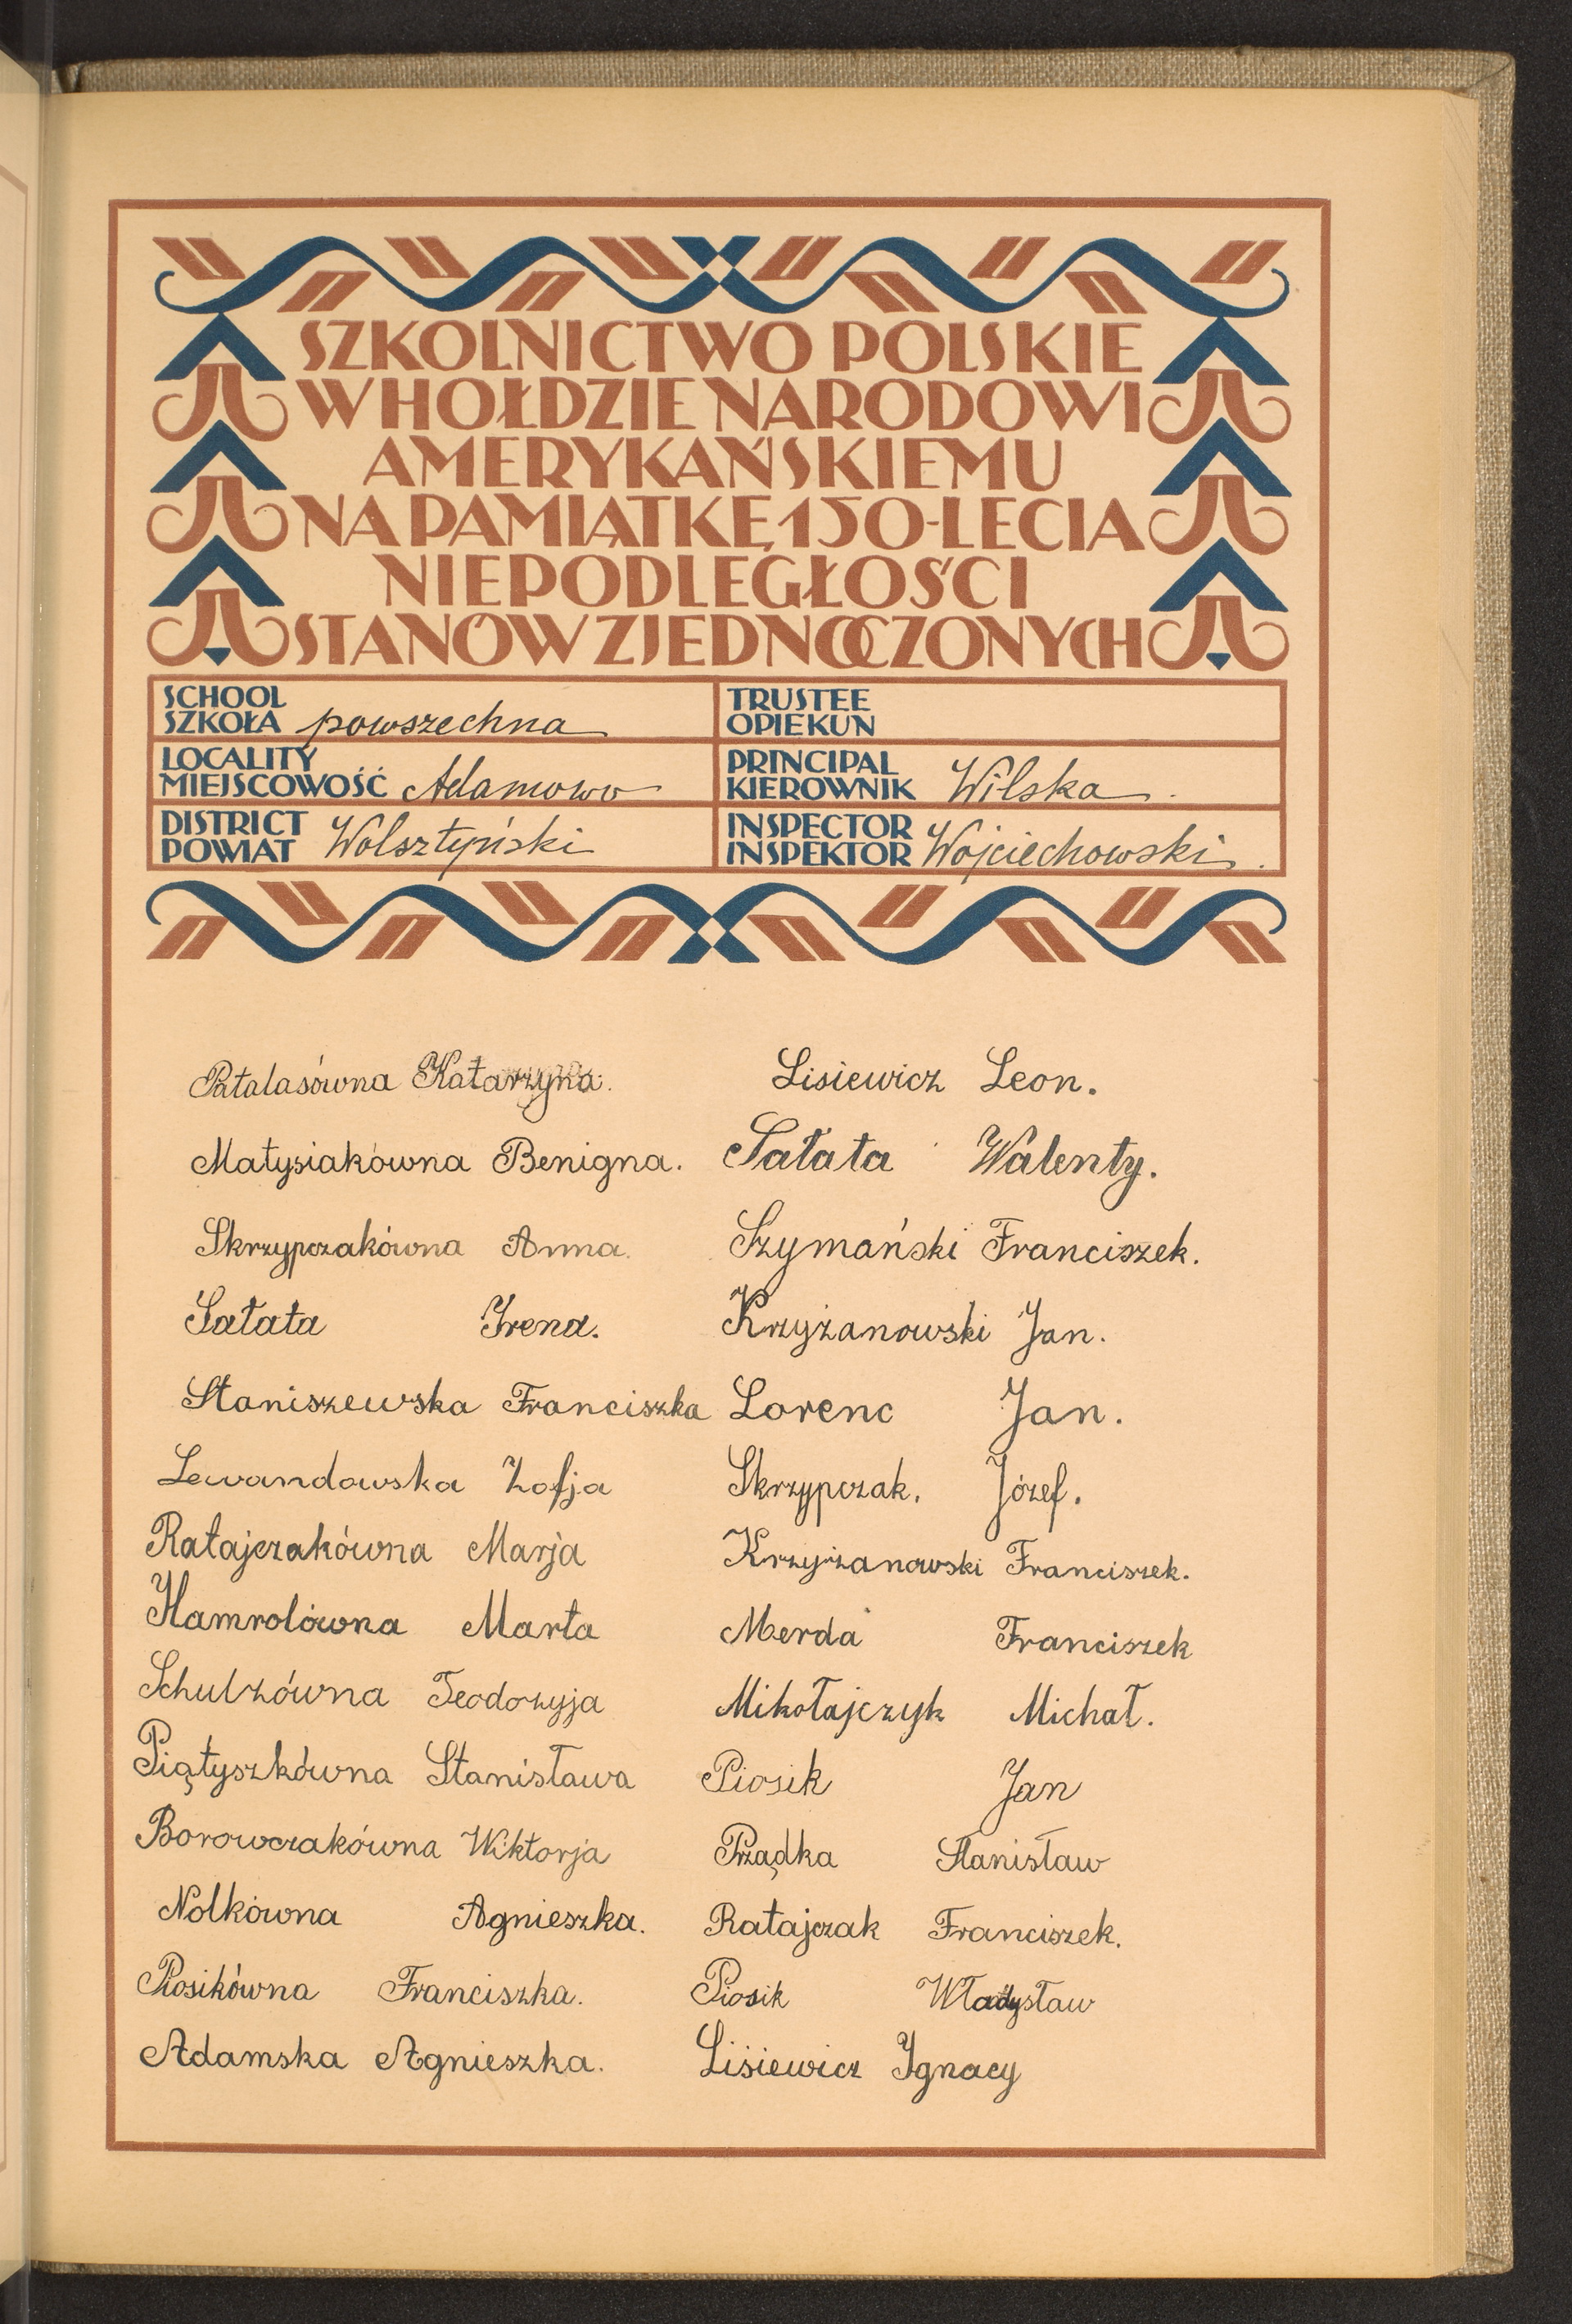 SZKOLNICTWO POLSKIE
W HOŁDZIE NARODOWI
AMERYKAŃSKIEMU
NA PAMIĄTKĘ 150-LECIA
NIEPODLEGŁOŚCI
STANÓW ZJEDNOCZONYCH
SCHOOL
SZKOŁA powszechna
TRUSTEE
OPIEKUN
LOCALITY
MIEJSCOWOŚĆ Adamowo
PRINCIPAL
KIEROWNIK Wilska.
DISTRICT
POWIAT Wolsztyński
INSPECTOR
INSPEKTOR Wojciechowski.
Patalasówna Katarzyna.
Matysiakówna Benigna.
Skrzypczakówna Anna.
Sałata Irena.
Staniszewska Franciszka
Lewandowska Zofja
Ratajczakówna Marja
Hamrolówna Marta
Schulzówna Teodozyja
Piątyszkówna Stanisława
Borowczakówna Wiktorja
Nolkówna Agnieszka.
Piosikówna Franciszka.
Adamska Agnieszka.
Lisiewicz Leon.
Sałata Walenty.
Szymański Franciszek.
Krzyżanowski Jan.
Lorenc Jan.
Skrzypczak. Józef.
Krzyżanowski Franciszek.
Merda Franciszek
Mikołajczyk Michał.
Piosik Jan
Prządka Stanisław
Ratajczak Franciszek.
Piosik Władysław
Lisiewicz Ignacy